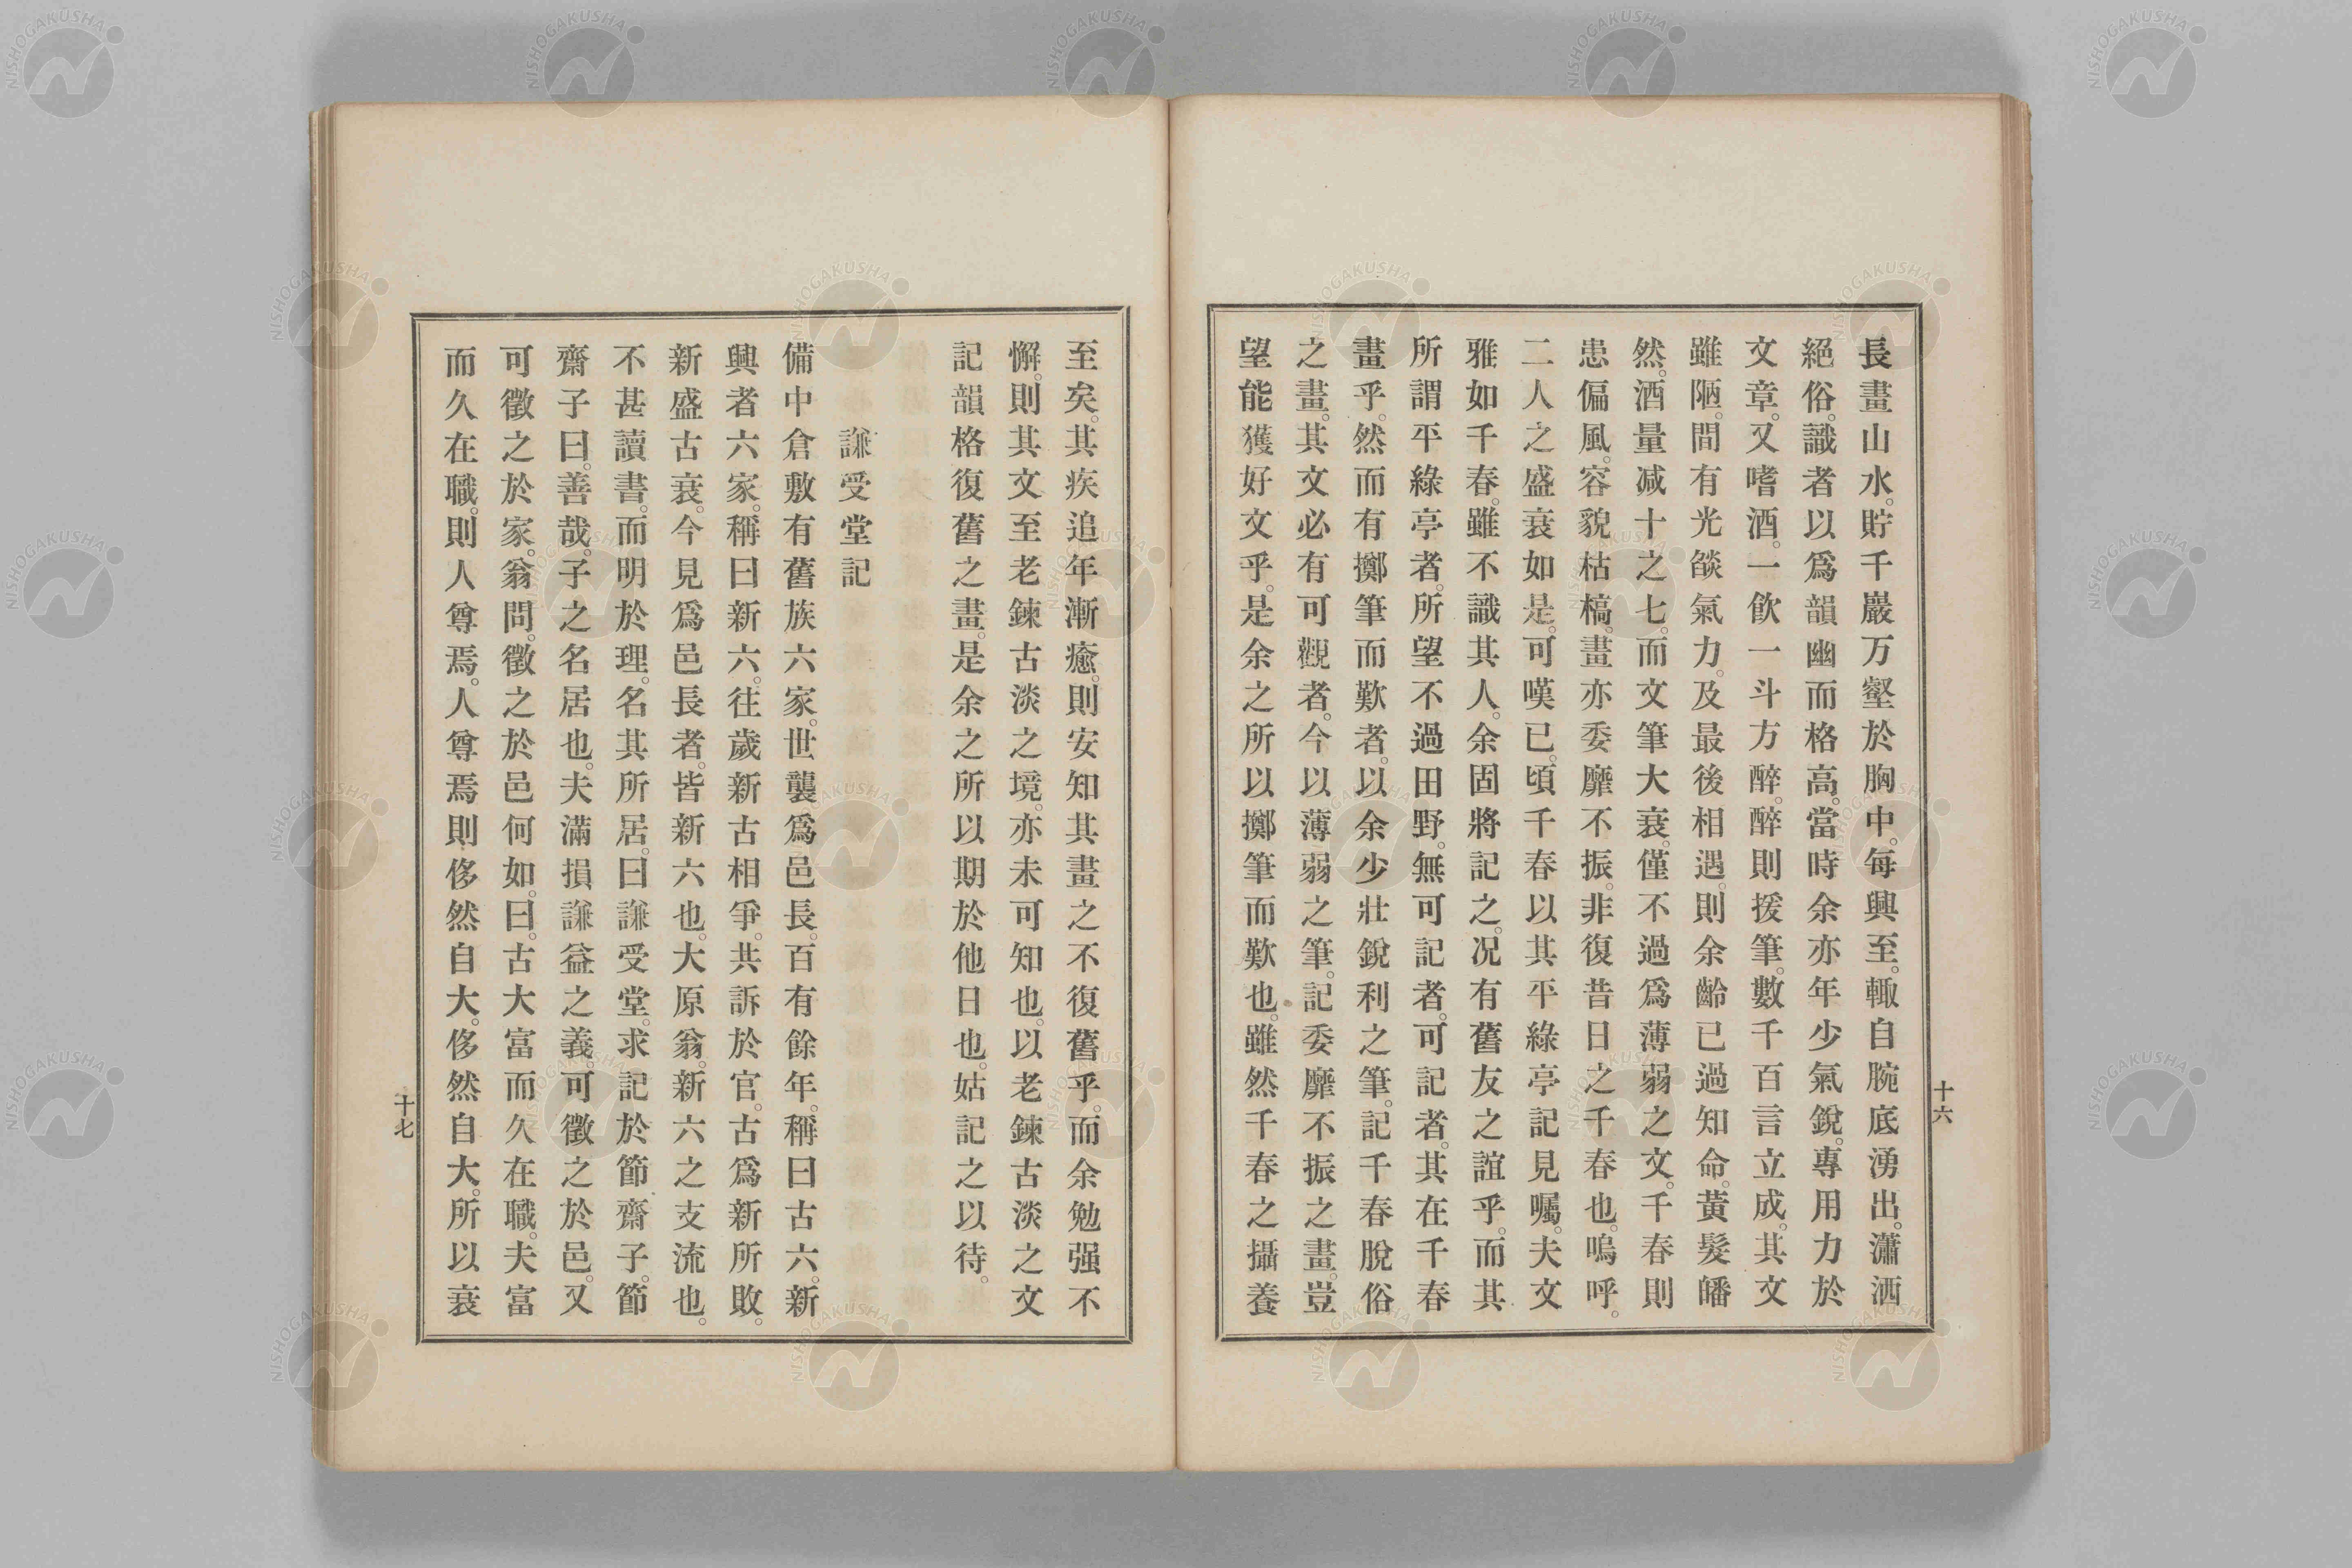 長畫山水。貯千巖万壑於胸中。每興至。輙自腕底湧出。瀟洒
絕俗。識者以爲韻幽而格高。當時余亦年少氣銳。專用力於
文章。又嗜酒。一飲一斗方醉。醉則援筆。數千百言立成。其文
雖陋。間有光燄氣力。及最後相遇。則余齡已過知命。黃髮皤
然。酒量減十之七。而文筆大衰。僅不過爲薄弱之文。千春則
患偏風。容貌枯槁。畫亦委靡不振。非復昔日之千春也。嗚呼。
二人之盛衰如是。可嘆已。頃千春以其平綠亭記見囑。夫文
雅如千春。雖不識其人。余固將記之。况有舊友之誼乎。而其
所謂平綠亭者。所望不過田野。無可記者。可記者。其在千春
畫乎。然而有擲筆而歎者。以余少壯銳利之筆。記千春脫俗
之畫。其文必有可觀者。今以薄弱之筆。記委靡不振之畫。豈
望能獲好文乎。是余之所以擲筆而歎也。雖然千春之攝養
十六
至矣。其疾追年漸癒。則安知其畫之不復舊乎。而余勉强不
懈。則其文至老鍊古淡之境。亦未可知也。以老鍊古淡之文
記韻格復舊之畫。是余之所以期於他日也。姑記之以待。
謙受堂記
備中倉敷有舊族六家。世襲爲邑長。百有餘年。稱曰古六。新
興者六家。稱曰新六。往歲新古相爭。共訴於官。古爲新所敗。
新盛古衰。今見爲邑長者。皆新六也。大原翁。新六之支流也。
不甚讀書。而明於理。名其所居。曰謙受堂。求記於節齋子。節
齋子曰。善哉。子之名居也。夫滿損謙益之義。可徵之於邑。又
可徵之於家。翁問。徵之於邑何如。曰。古大富而久在職。夫富
而久在職。則人尊焉。人尊焉則侈然自大。侈然自大。所以衰
十七
NISHOGAKUSHA